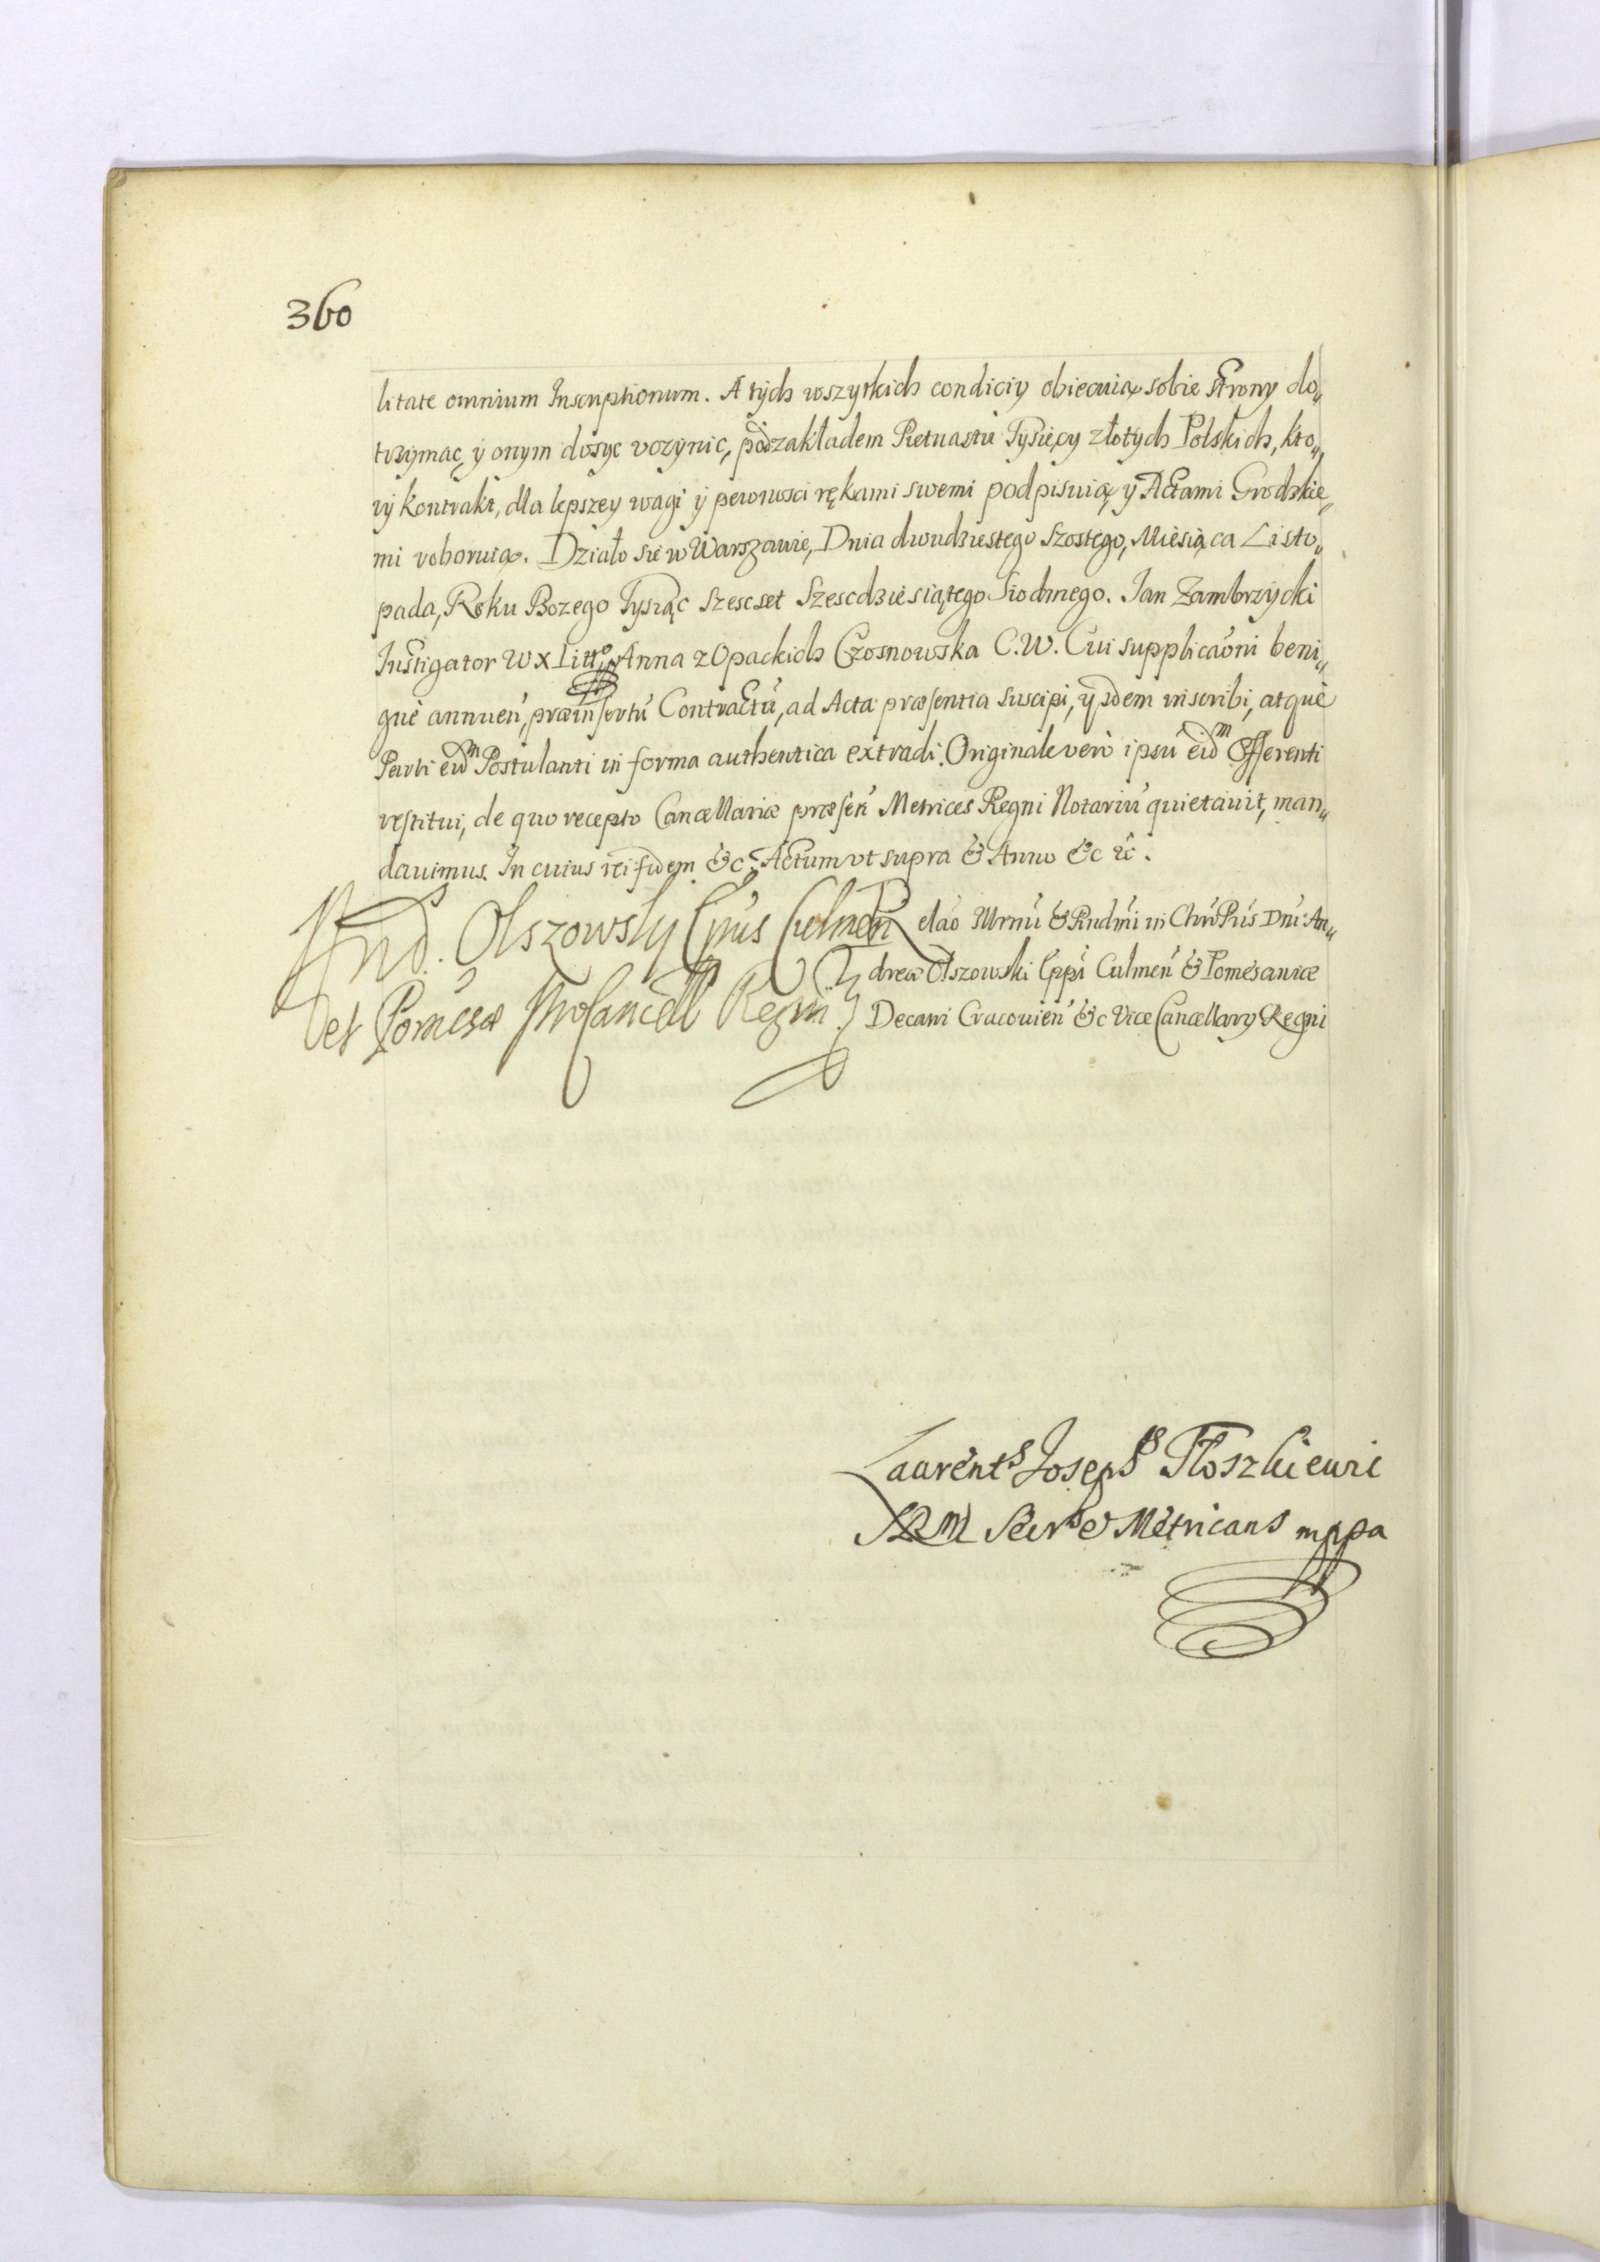 360
litate omnium Inscriptionum. A tÿch wszytkich condiciy obiecuią sobie strony do„
trzÿmac, ÿ onym dosyc vczÿnic, pod zakładem Pietnastu Tysięcy złotÿch Polskich, kto„
rÿ kontrakt, dla lepszey wagi ÿ pewnosci rękami swemi podpisuią, ÿ Actami Grodzkie„
mi roboruią. Działo sie w Warszawie, Dnia dwudziestego Szostego, Miesiąca Listo„
pada, Roku Bozego Tysiąc Szescset Szescdziesiątego Siodmego. Jan Zambrzycki
Instigator WXLitto Anna z Opackich Czosnowska C.W. Cui supplicaõni beni„
gnè annuen̄, præinsertū Contractū, ad Acta præsentia suscipi, ÿsdem inscribi, atquè
Parti eidm Postulanti in forma authentica extradi. Originale verò ipsū eidm Offerenti
restitui, de quo recepto Cancellariæ præsen̄ Metrices Regni Notariū quietauit, man„
dauimus. In cuius rei fidem &c. Actum vt supra & Anno &c &c.
And. Olszowsky Eṕus Culmen̄
et Pomesæ ProCancell Regni
Relaõ Illrmi & Rndmi in Chrõ Pris Dni An„
dreæ Olszowski Eppi Culmen̄ & Pomesaniæ
Decani Cracouien̄ &c Vice Cancellarÿ Regni
Laurents Josephs Płoszkiewic
SRM Secrs & Metricans mppa